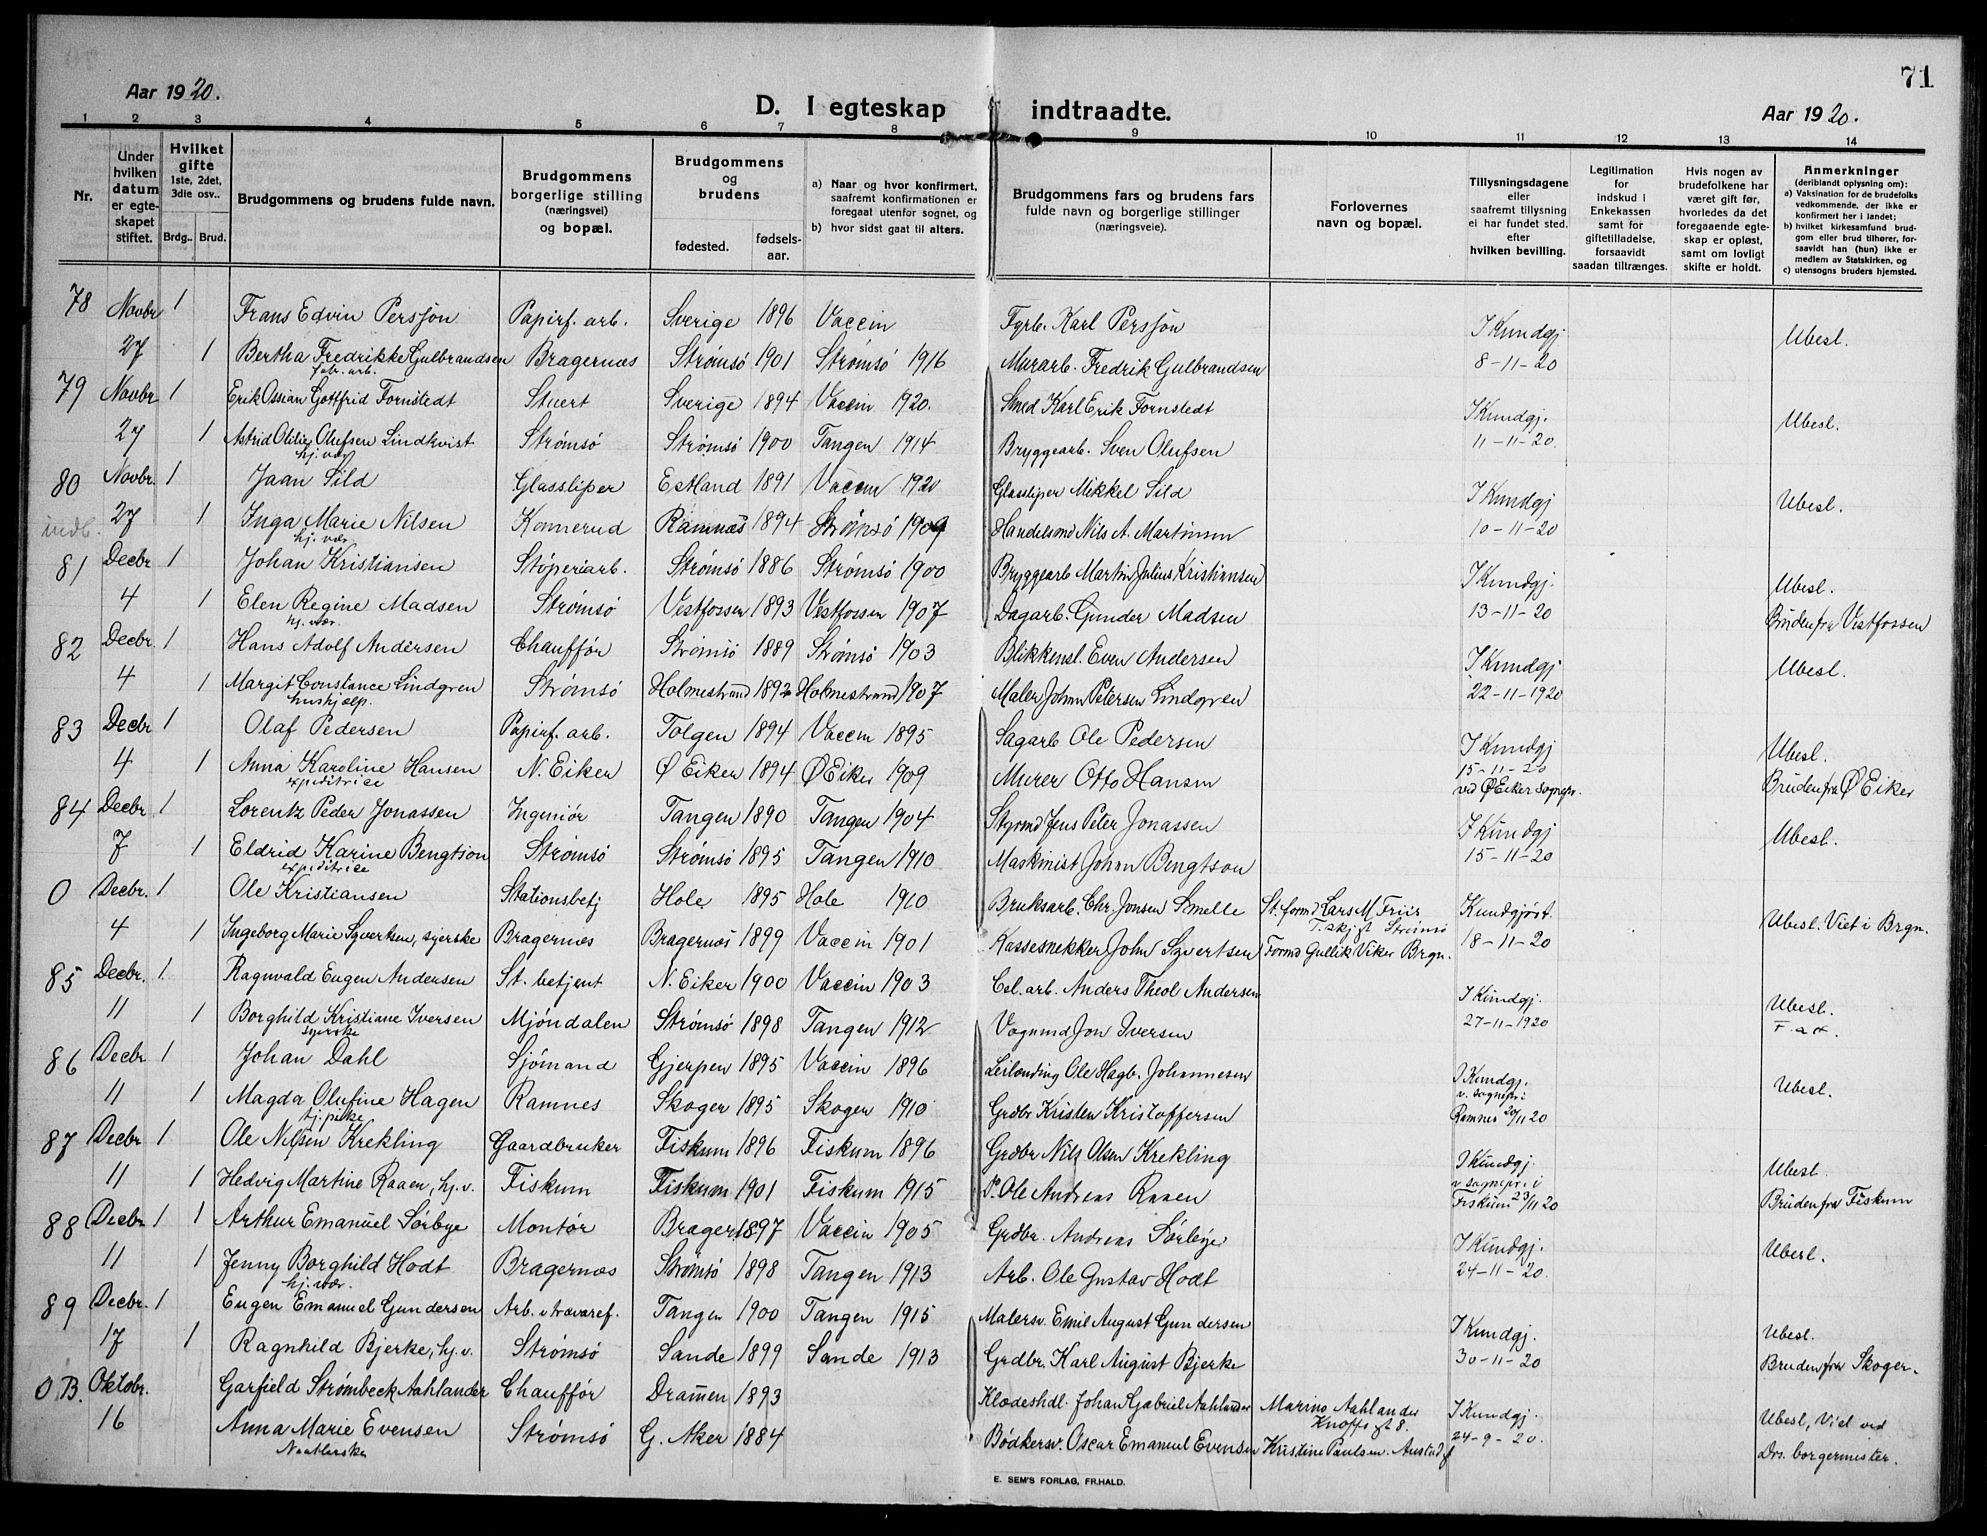 71
Aar 1920.
D. I egteskap indtraadte.
Aar 1920.
1 2 3 4 5 6 7 8 9 10 11 12 13 14
Nr.
Under hvilken datum er egteskapet stiftet.
Hvilket gifte 1ste, 2det, 3die osv..
Brdg.. Brud.
Brudgommens og brudens fulde navn.
Brudgommens borgerlige stilling (næringsvei) og bopæl.
Brudgommens og brudens
fødested. fødselsaar.
a) Naar og hvor konfirmert, saafremt konfirmationen er foregaat utenfor sognet, og
b) hvor sidst gaat til alters.
Brudgommens fars og brudens fars fulde navn og borgerlige stillinger (næringsveie).
Forlovernes navn og bopæl.
Tillysningsdagene eller saafremt tillysning ei har fundet sted, efter hvilken bevilling.
Legitimation for indskud i Enkekassen samt for giftetilladelse, forsaavidt saadan tiltrænges.
Hvis nogen av brudefolkene har været gift før, hvorledes da det foregaaende egteskap er opløst, samt om lovligt skifte er holdt.
Anmerkninger (deriblandt oplysning om): a) Vaksination for de brudefolks vedkommende, der ikke er konfirmert her i landet; b) hvilket kirkesamfund brudgom eller brud tilhører, forsaavidt han (hun) ikke er medlem av Statskirken, og c) utensogns bruders hjemsted.
78 Novbr 1 Frans Edvin Persson Papirf. arb. Sverige 1896 Vaccin Fyrb. Karl Persson I Kundgj Ubesl.
27 1 Bertha Fredrikke Gulbrandsen Bragernæs Strømsø 1901 Strømsø 1916 Murarb. Fredrik Gulbrandsen 8-11-20
fabr. arb.
79 Novbr 1 Erik Ossian Gottfrid Fornstedt Stuert Sverige 1894 Vaccin 1920. Smed Karl Erik Fornstedt I Kundgj. Ubesl.
27 1 Astrid Otilie Olufsen Lindkvist Strømsø Strømsø 1900 Tangen 1914 Bryggearb. Sven Olufsen 11-11-20.
hj. vær
80 Novbr. 1 Jaan Sild Glassliper Estland 1891 Vaccin 1920 Glassliper Mikkel Sild I Kundgj Ubesl.
indb. 27 1 Inga Marie Nilsen Konnerud Ramnæs 1894 Strømsø 1909 Handelsmd Nils A. Martinsen 10-11-20
hj. vær
81 Decbr 1 Johan Kristiansen Støperiarb. Strømsø 1886 Strømsø 1900 Bryggearb Martin Julius Kristiansen I Kundgj. Ubesl.
4 1 Elen Regine Madsen Strømsø Vestfossen 1893 Vestfossen 1907 Dagarb. Gunder Madsen 13-11-20 Bruden fra Vestfossen
hj. vær.
82 Decbr 1 Hans Adolf Andersen Chauffør Strømsø 1889 Strømsø 1903 Blikkensl. Even Andersen I Kundgj Ubesl.
4 1 Margit Constance Lindgren Strømsø Holmestrand 1892 Holmestrand 1907 Maler Johan Petersen Lindgren 22-11-1920
hushjælp.
83 Decbr 1 Olaf Pedersen Papirf. arb. Tolgen 1894 Vaccin 1895 Sagarb Ole Pedersen I Kundgj Ubesl.
4 1 Anna Karoline Hansen N. Eiker Ø Eiker 1894 Ø Eiker 1909 Murer Otto Hansen 15-11-20 ved Ø Eiker sognepr. Bruden fra Ø Eiker
expeditrice
84 Decbr 1 Lorentz Peder Jonassen Ingeniør Tangen 1890 Tangen 1904 Styrmd Jens Peter Jonassen I Kundgj Ubesl.
7 1 Eldrid Karine Bengtson Strømsø Strømsø 1895 Tangen 1910 Maskinist Johan Bengtson 15-11-20
expeditrice
0 Decbr. 1 Ole Kristiansen Stationsbetj Hole 1895 Hole 1910 Bruksarb. Chr Jonsen Smelle St. formd Lars M. Friis Kundgjøst.
4 1 Ingeborg Marie Syvertsen, syerske Bragernæs Bragernæs 1899 Vaccin 1901 Kassesnekker John Syvertsen Formd Gullik Viker Brgn. 18-11-20 Ubesl. Viet i Brgn.
85 Decbr. 1 Ragnvald Eugen Andersen St. betjent N. Eiker 1900 Vaccin 1903 Cel. arb. Anders Theol Andersen I Kundgj. Ubesl.
11 1 Borghild Kristiane Iversen Mjøndalen Strømsø 1898 Tangen 1912 Vognmd Jon Iversen 27-11-1920
syerske
86 Decbr 1 Johan Dahl Sjømand Gjerpen 1895 Vaccin 1896 Leilending Ole Hagb. Johannesen I Kundgj. v. sognepr i Ubesl.
11 1 Magda Olufine Hagen Ramnes Skoger 1895 Skoger 1910 Grdbr Kristen Kristoffersen Ramnes 20/11 20
tj. pike
87 Decbr 1 Ole Nilsen Krekling Gaardbruker Fiskum 1896 Fiskum 1896 Grdbr Nils Olsen Krekling I Kundgj. v sognepr. i Ubesl.
11 1 Hedvig Martine Raaen, hj. v. Fiskum Fiskum 1901 Fiskum 1915 Ole Andreas Raaen Fiskum 23/11 20 Bruden fra Fiskum
88 Decbr 1 1 Arthur Emanuel Sørbye Montør Brager. 1897 Vaccin 1905 Grdbr. Andreas Sørbye I Kundgj. Ubesl.
11 1 Jenny Borghild Hodt Bragernæs Strømsø 1898 Tangen 1913 Arb. Ole Gustav Hodt 24-11-20.
hj. vær.
89 Decbr. 1 Eugen Emanuel Gundersen Arb. v travaref. Tangen 1900 Tangen 1915 Malersv. Emil August Gundersen I Kundgj. Ubesl.
17 1 Ragnhild Bjerke, hj. v. Strømsø Sande 1899 Sande 1913 Grdbr. Karl August Bjerke 30-11-20 Bruden fra Skoger.
0,B. Oktobr. Garfield Strømbeck Aahlander Chauffør Drammen 1893 Klædeshdl. Johan Gabriel Aahlander Marino Aahlander Knoffs gt 8. I Kundgj. Ubesl, Viet ved
16 Anna Marie Evensen Strømsø G. Aker 1884 Bødkersv. Oscar Emanuel Evensen Kristine Paulsen. 24-9-20. Drs. borgermester.
E. SEM'S FORLAG, FR.HALD.